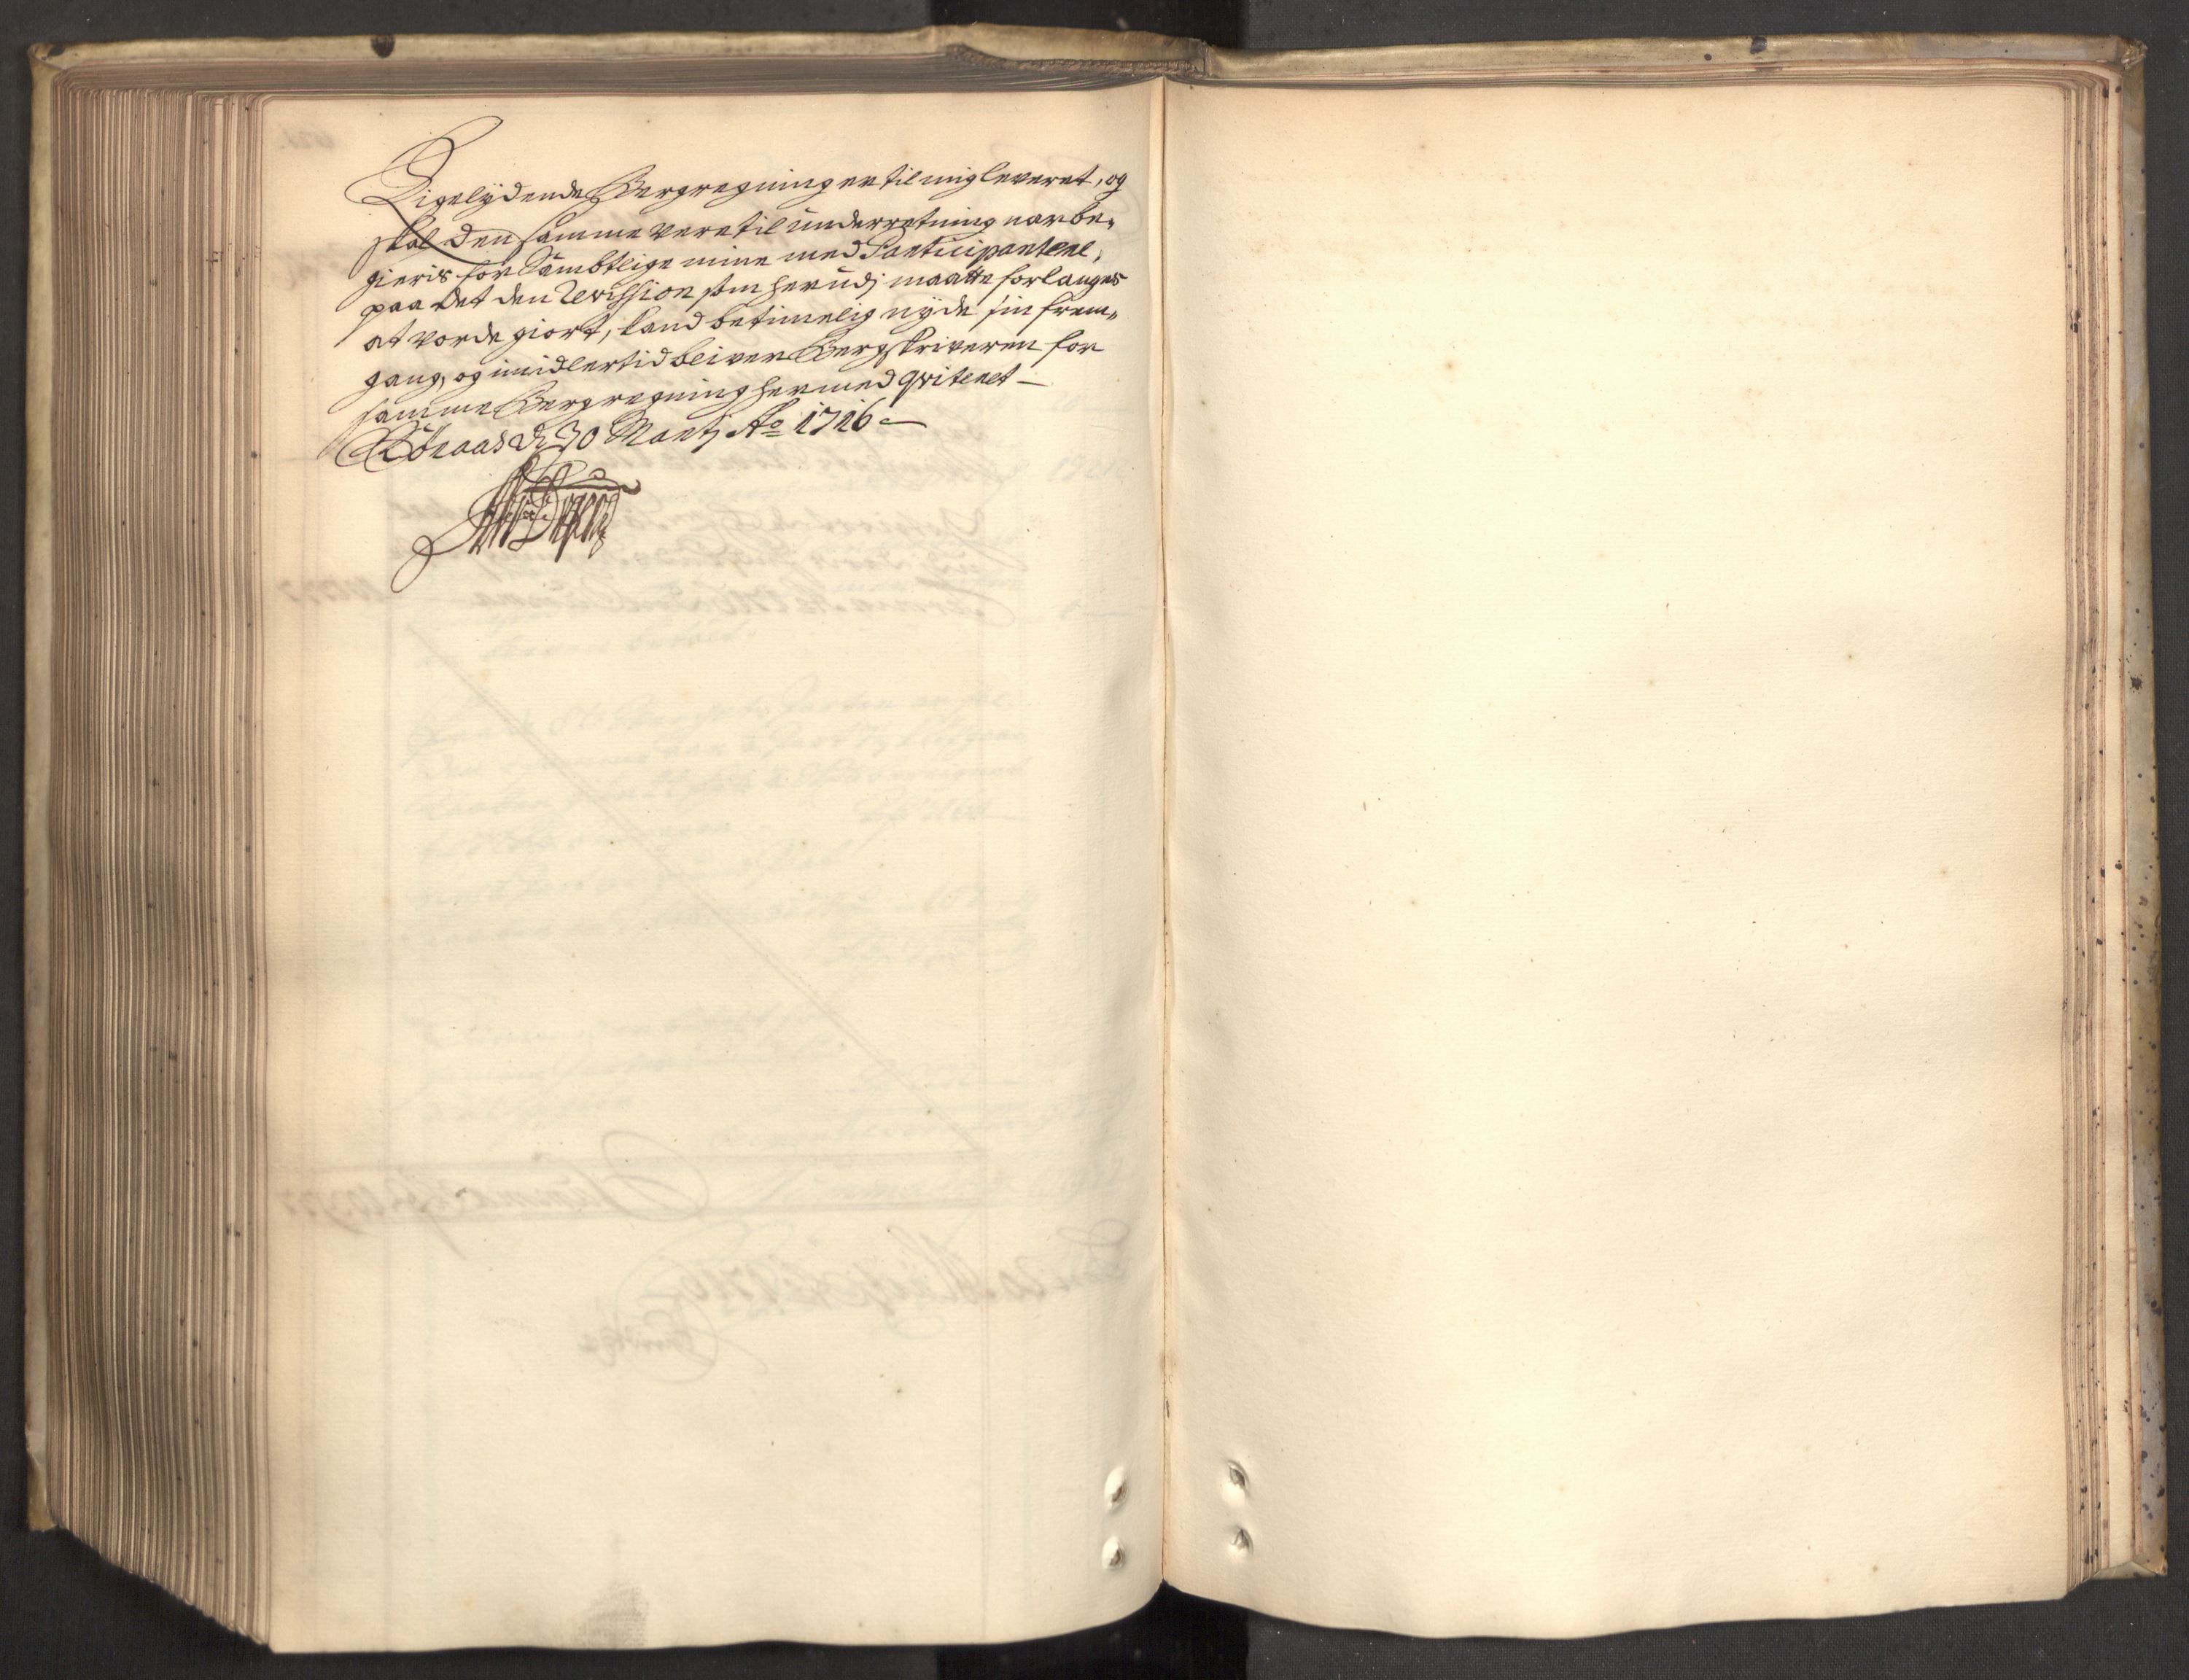 Ligelÿdende Bergregning er til mig leveret, og
skal den samme være til underretning naar be„
gieris for Sambtlige mine med Participantere,
paa det den Revission som herudj maatte forlanges
at vorde giort, kand betimelig nÿde sin frem„
gang, og imidlertid bliver Bergskriveren for
samme Bergregning hermed qviteret —
Röraas d 30 Martj Ao 1716 —